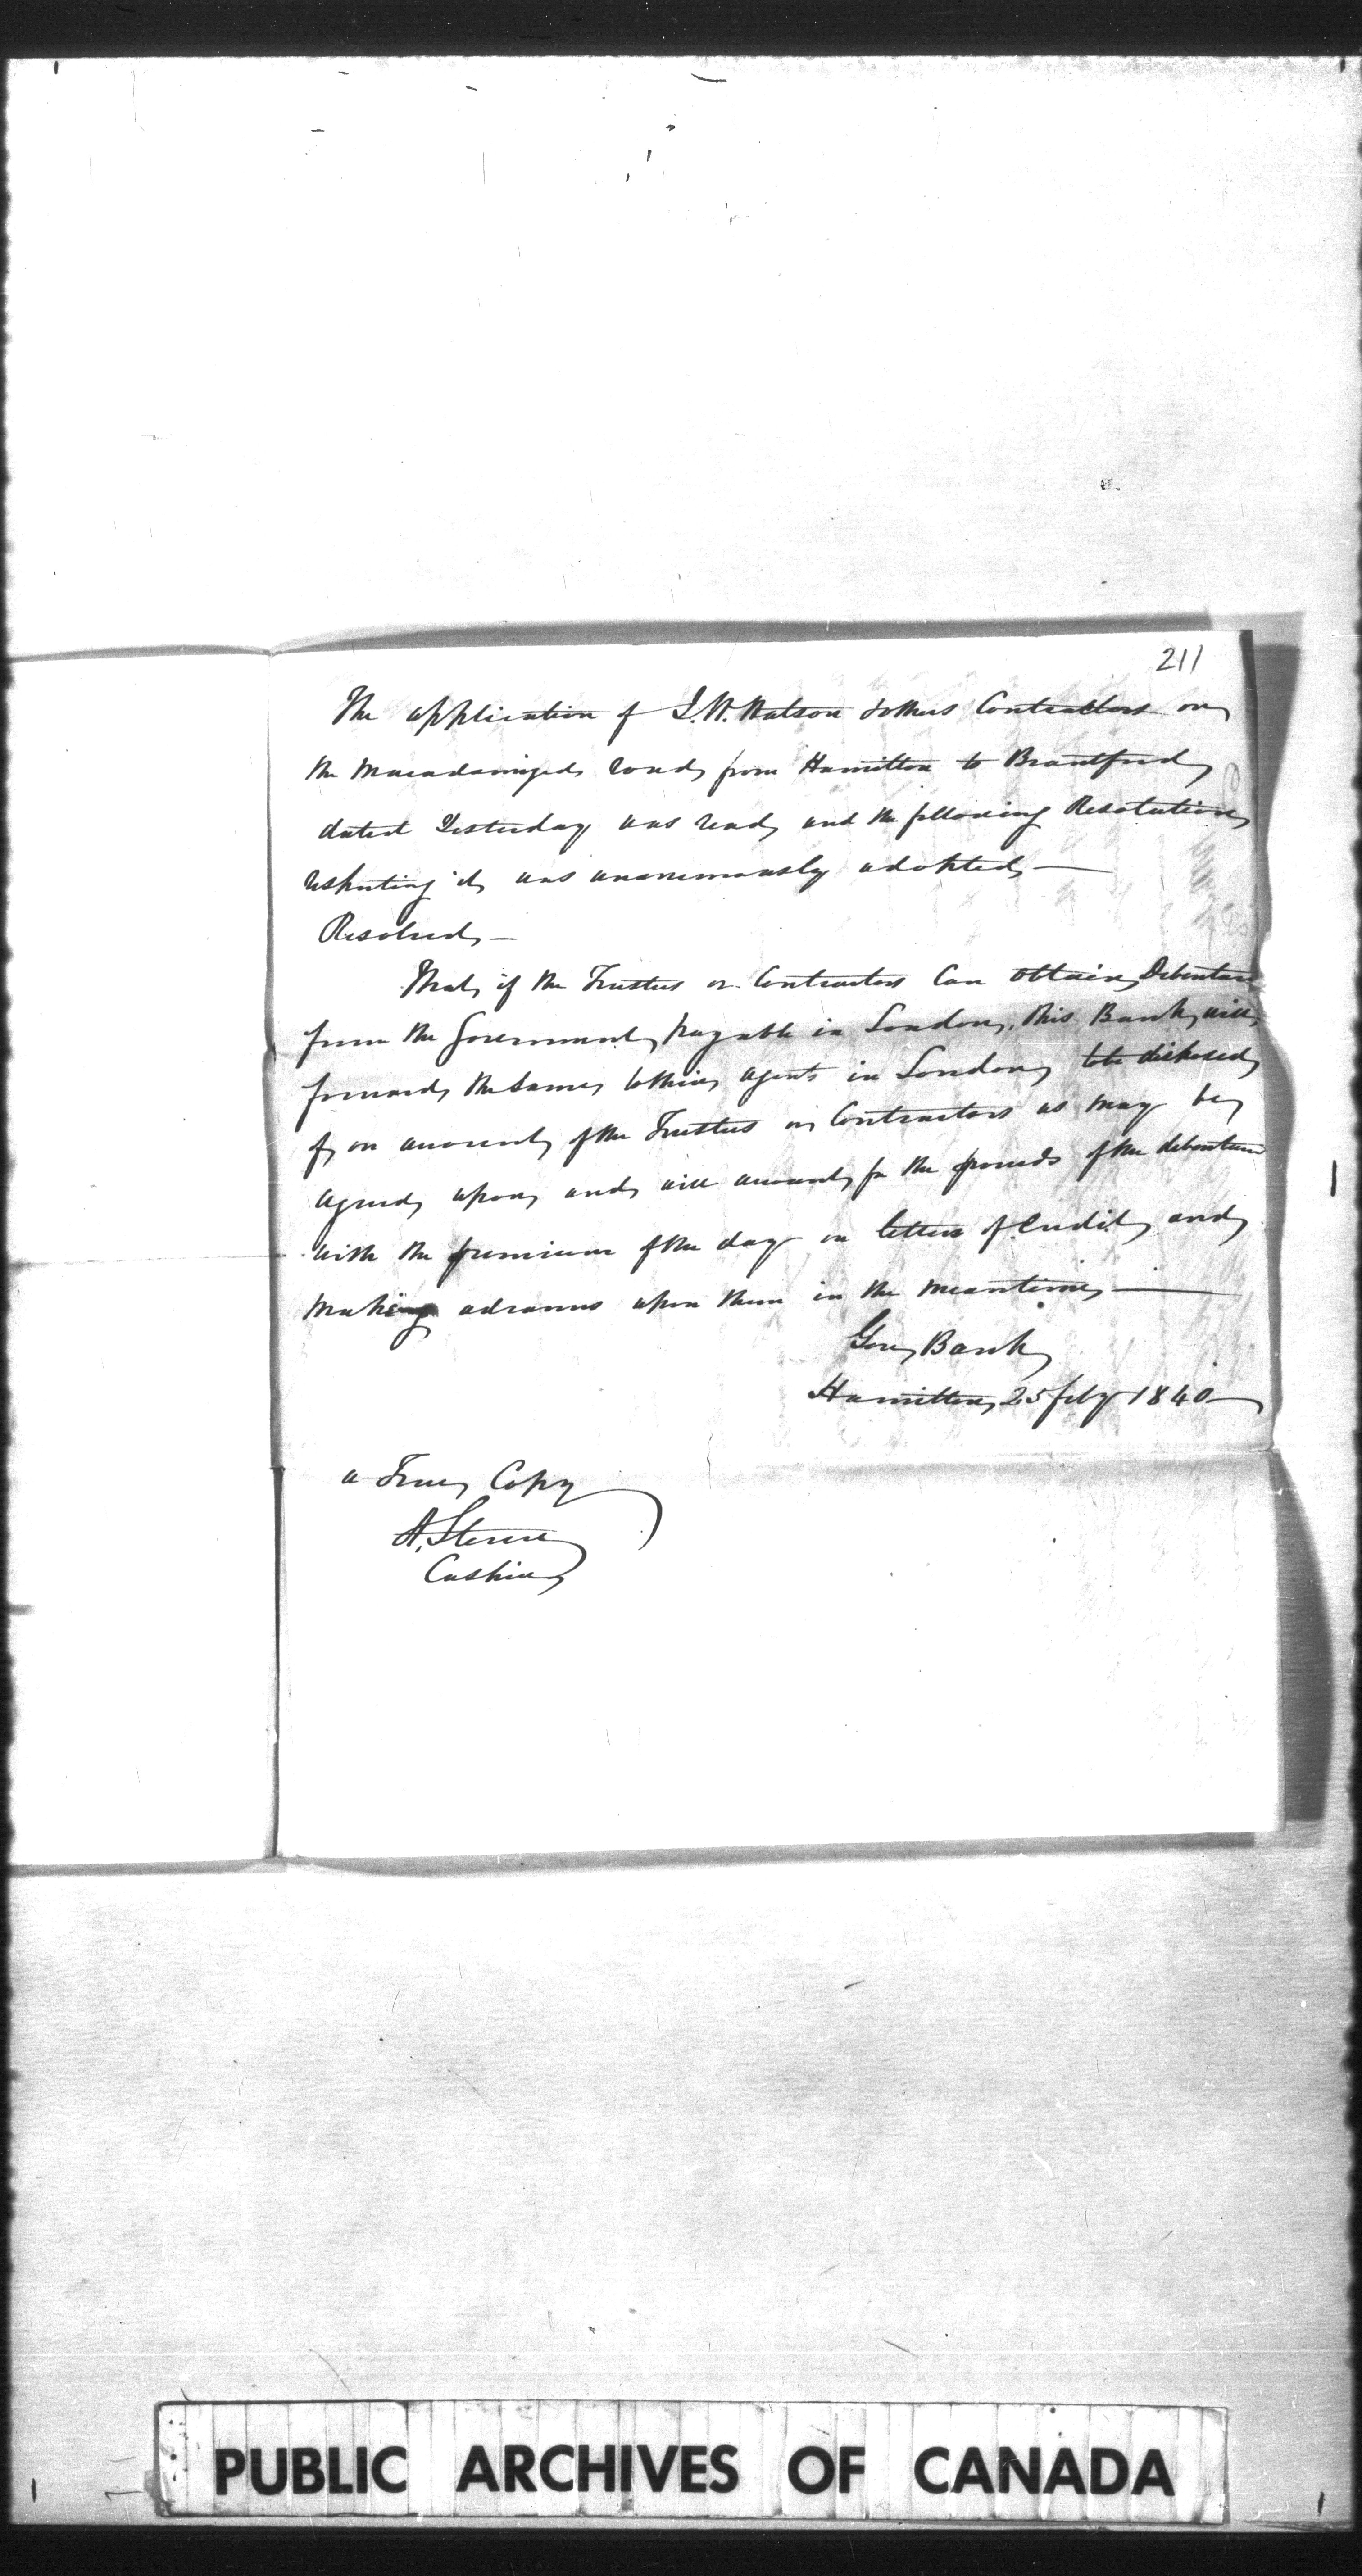 211
The application of J. W. Watson & others Contractors on
the Macadamized road from Hamilton to Brantford
dated Yesterday was read and the following Resolution
respecting it was unanimously adopted —
Resolved —
That if the Trustees or Contractors Can obtain Debentures
from the Government payable in London, this Bank will
forward the same to their agents in London to be disposed
of on account of the Trustees or Contractors as may be
agreed upon and will account for the proceeds of the debentures
with the premium of the day on letters of Credit and
making advances upon them in the meantime —
Gore Bank
Hamilton 25 feby 1840
a True Copy
A. Steven
Cashier
PUBLIC ARCHIVES OF CANADA